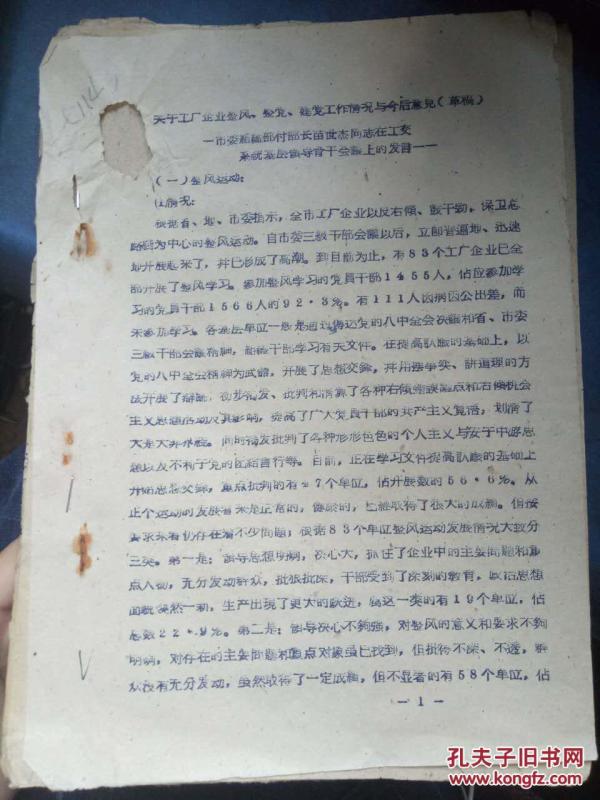 关于工厂企业整风、整党、建党工作情况与今后意见(草稿)
—市委组织部付部长苗世杰同志在工交
系统基层领导骨干会议上的发言——
(一)整风运动:
情况:
根据省、地、市委指示,全市工厂企业以反右倾、鼓干劲,保卫总
路线为中心的整风运动。自市委三级干部会议以后,立即普遍地、迅速
地开展起来了,并已形成了高潮。到目前为止,有83个工厂企业已全
部开展了整风学习。参加整风学习的党员干部1455人,佔应参加学
习的党员干部1566人的92·3%。有111人因病因公出差,而
未参加学习。各基层单位一般是通过传达党的八中全会决议和省、市委
三级干部会议精神,组织干部学习有关文件。在提高认识的基础上,以
党的八中全会精神为武器,开展了思想交锋,并用摆事实、讲道理的方
法开展了辩论,初步揭发、批判和清算了各种右倾错误论点和右倾机会
主义思想活动及其影响,提高了广大党员干部的共产主义觉悟,划清了
大是大非界线。同时揭发批判了各种形形色色的个人主义与安于中游思
想以及不利于党的团结言行等。目前,正在学习文件提高认识的基础上
开始思想交锋,重点批判的有47个单位,佔开展数的56·6%。从
正个运动的发展看来是正常的,健康的,已经取得了很大的成绩。但按
要求来看仍存在着不少问题;根据83个单位整风运动发展情况大致分
三类。第一是:领导思想明确,决心大,抓住了企业中的主要问题和重
点人物,充分发动群众,批狠批深,干部受到了深刻的教育,政治思想
面貌焕然一新,生产出现了更大的跃进,属这一类的有19个单位,佔
总数22·9%。第二是:领导决心不夠强,对整风的意义和要求不夠
明确,对存在的主要问题和重点对象虽已找到,但批得不深、不透,群
众没有充分发动,虽然取得了一定成绩,但不显著的有58个单位,佔
—1—
孔夫子旧书网
www.kongfz.com